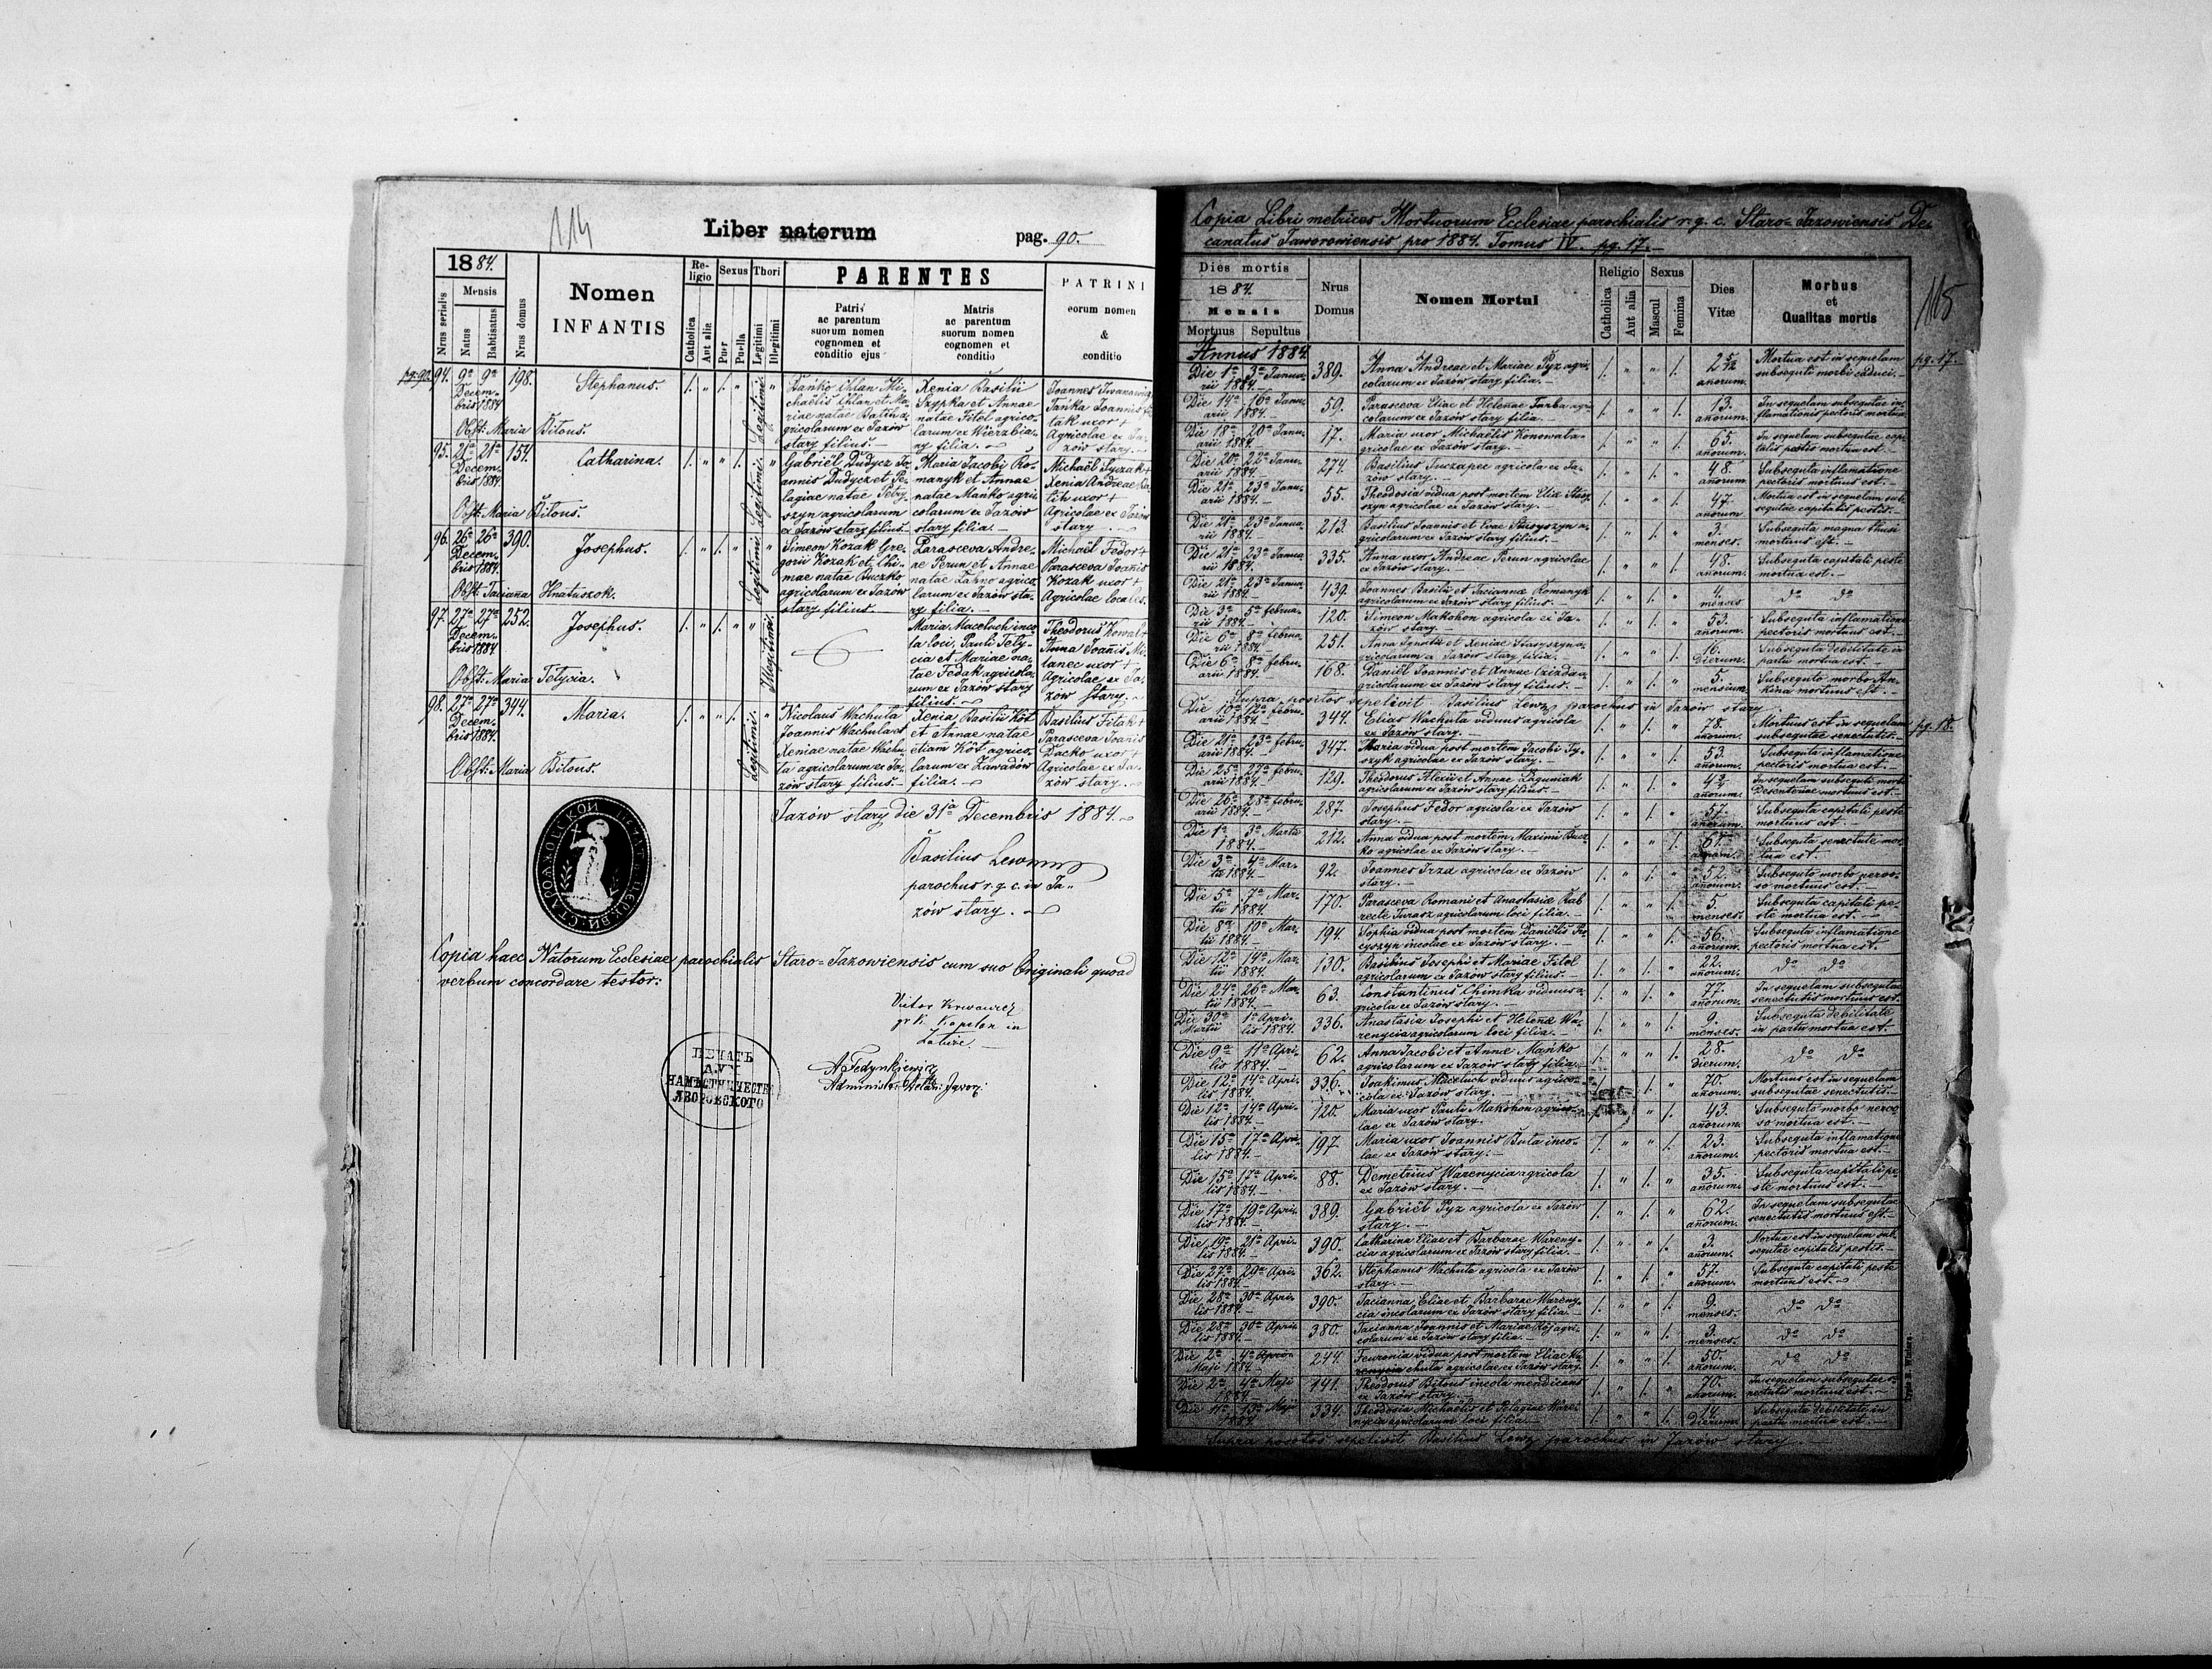 114
Liber natorum
pag. 90.
1884.
Nrus serialis
Mensis
Natus
Babtisatus
Nrus domus
Nomen
INFANTIS
Religio
Catholica
Aut alia
Sexus
Puer
Puella
Thori
Legitimi
Illegitimi
PARENTES
Patris
ac parentum
suorum nomen
cognomen et
conditio ejus
Matris
ac parentum
suorum nomen
cognomen et
conditio
PATRINI
eorum nomen
&
conditio
94. 9a 9a Decembris 1884 198. Stephanus. Legitimi.
chaëlis Chlan et Ma-
riae natae
gricolarum ex Jazów
stary filius.
Xenia Basilii
Szypka et Annae
natae Fitel agrico-
larum ex Wierzbia-
ny filia.
Joannes
Agricolae ex Ja-
zów stary.
Obst: Maria Bitous.
95. 21a 21a Decembris 1884. 154. Catharina. Legitimi.
Gabriël Dudycz Jo-
annis Dudycz et Pe-
lagiae natae Petry-
szyn agricolarum
ex Jazów stary filius.
Maria Jacobi Ro-
manyk et Annae
natae Mańko agri-
colarum ex Jazów
stary filia.
Michaël
Xenia Andreae
uxor +
Agricolae ex Jazów
stary
Obst: Maria Bitous.
96. 26a 26a Decembris 1884. 390. Josephus. Legitimi.
Simeon Kozak Gre-
gorii Kozak et Chi-
mae natae Buczko
agricolarum ex Jazów
stary filius.
Parasceva Andre-
ae Perun et Annae
natae Zahno agrico-
larum ex Jazów sta-
ry filia.
Michaël Fedor +
Parasceva Joannis
Kozak uxor +
Agricolae locales.
Obst: Taciana Hnatuszok.
97. 27a 27a Decembris 1884 252. Josephus. Illegitimi.
Maria Maceluch inco-
la loci, Pauli Tety-
cia et Mariae na-
tae Fedak agricola-
rum ex Jazów stary
filius.
Theodorus Kowal +
Anna Joannis Mi-
lanec uxor +
Agricolae ex Ja-
zów stary.
Obst: Maria Tetycia.
98. 27a 27a Decembris 1884. 344. Maria. Legitimi.
Nicolaus Wachula
Joannis Wachula et
Xeniae natae Wachu-
ta agricolarum ex Ja-
zów stary filius.
Xenia Basilii Kót
et Annae natae
etiam Kót agrico-
larum ex Zawadów
filia.
Basilius Fitak +
Parasceva Joannis
Dacko uxor +
Agricolae ex Ja-
zów stary.
Obst: Maria Bitous.
Jazów stary die 31a Decembris 1884.
Basilius
parochus r. g. c. in Ja-
zów stary.
Copia haec Natorum Ecclesiae parochialis Staro-Jazowiensis cum suo Originali quoad
verbum concordare testor:
Victor
gr. k. Kapelan in
ПЕЧАТЬ
ДУХ
НАМѢСТНИЧЕСТВА
ЯВОРОВСКОГО
A Fedynkiewicz
Copia Libri metrices Mortuorum Ecclesiae parochialis r. g. c. Staro-Jazowiensis De-
canatus Jaworowiensis pro 1884. Tomus IV. pg. 17.
115
Dies mortis
1884.
Mensis
Mortuus Sepultus
Nrus
Domus
Nomen Mortui
Religio
Catholica
Aut alia
Sexus
Mascul
Femina
Dies
Vitæ
Morbus
et
Qualitas mortis
Annus 1884 pg. 17.
Die 1a 3a Janua-
rii 1884. 389. Anna Andreae et Mariae Pyz agri-
colarum ex Jazów stary filia. 2 5/12 anorum. Mortua est in sequelam
subsequti morbi caduci.
Die 14a 16a Janu-
arii 1884. 59. Parasceva Eliae et Helenae Farba agri-
colarum ex Jazów stary filia 13. anorum. In sequelam subsequtae in-
flamationis pectoris mortua
Die 18a 20a Janu-
arii 1884. 17. Maria uxor Michaëlis Konowala
gricolae ex Jazów stary. 65. anorum. In sequelam subsequtae capi-
talis pestis mortua est.
Die 20a 22a Janu-
arii 1884 274. Basilius Juczapec agricola ex Ja-
zów stary. 48. anorum. Subsequta inflamatione
pectoris mortuus est.
Die 21a 23a Janu-
arii 1884. 55. Theodosia vidua post mortem Eliæ Stasy-
szyn agricolae ex Jazów stary. 47. anorum Mortua est in sequelam sub-
sequtae capitalis pestis.
Die 21a 23a Janua-
rii 1884. 213. Basilius Joannis et Evae Stasyszyn a-
gricolarum ex Jazów stary filius. 3. menses. Subsequta magna thusi
mortuus est.
Die 21a 23a Janua-
rii 1884. 335. Anna uxor Andreae Perun agricolae
ex Jazów stary. 48. anorum. Subsequta capitali peste
mortua est.
Die 21a 23a Janua-
rii 1884. 439. Joannes Basilii et Taciannæ Romanyk
agricolarum ex Jazów stary filius. 4. menses do do
Die 3a 5a februa-
rii 1884. 120. Simeon Makohon agricola ex Ja-
zów stary. 53. anorum. Subsequta inflamatione
pectoris mortuus est.
Die 6a 8a februa-
rii 1884. 251. Anna Ignatii et Xeniae Stasyszyn a-
gricolarum ex Jazów stary filia. 16. dierum. Subsequta debilitate in
partu mortua est.
Die 6a 8a febru-
arii 1884. 168. Daniël Joannis et Annae Czizda a-
gricolarum ex Jazów stary filius. 5. mensium. Subsequto morbo An-
kina mortuus est.
Supra positos sepelivit Basilius Lewy parochus in Jazów stary
Die 10a 12a febru-
arii 1884. 344. Elias Wachuta viduus agricola
ex Jazów stary. 78. anorum. Mortuus est in sequelam
subsequtae senectutis. pg. 18.
Die 21a 23a febru-
arii 1884. 347. Maria vidua post mortem Jacobi Ty-
szyk agricolae ex Jazów stary. 53. anorum. Subsequta inflamatione
pectoris mortua est.
Die 25a 27a febru-
arii 1884. 129. Theodorus Alexii et Annae Laguniak
agricolarum ex Jazów stary filius. anorum. In sequelam subsequti morbi
mortuus est.
Die 26a 28a febru-
arii 1884. 287. Josephus Fedor agricola ex Jazów
stary. 57. anorum. Subsequta capitali peste
mortuus est.
Die 1a 3a Martii
1884. 212. Anna vidua post mortem Maximi Bucz-
ko agricolae ex Jazów stary. 61. anorum. Subsequta senectute mor-
tua est.
Die 3a 4a Mar-
tii 1884. 92. Joannes Irza agricola ex Jazów
stary. 52. anorum. Subsequto morbo nervo-
so mortuus est.
Die 5a 7a Mar-
tii 1884. 170. Parasceva Romani et Anastasiæ Rab
recte Turasz agricolarum loci filia. 5. menses. Subsequta capitali pe-
ste mortua est.
Die 8a 10a Mar-
tii 1884. 194. Sophia vidua post mortem Daniëlis
incolae ex Jazów stary. 56. anorum. Subsequta inflamatione
pectoris mortua est.
Die 12a 14a Mar-
tii 1884. 130. Basilius Josephi et Mariae Fitel
agricolarum ex Jazów stary filius. 22. anorum. do do
Die 24a 26a Mar-
tii 1884. 63. Constantinus Chimka viduus a-
gricola ex Jazów stary. 77. anorum. In sequelam subsequtae
senectutis mortuus est.
Die 30a Martii 1a Apri-
lis 1884. 336. Anastasia Josephi et Helenæ Wa-
renycia agricolarum loci filia. 9. menses. Subsequta debilitate
in partu mortua est.
Die 9a 11a Apri-
lis 1884. 62. Anna Jacobi et Annæ Mańko
agricolarum ex Jazów stary filia. 28. dierum. do do
Die 12a 14a Apri-
lis 1884. 336. Joakimus Maceluch viduus agri-
cola ex Jazów stary. 70. anorum. Mortuus est in sequelam
subsequtae senectutis.
Die 12a 14a Apri-
lis 1884 120. Maria uxor Pauli Makohon agrico-
lae ex Jazów stary. 43. anorum. Subsequto morbo nervo-
so mortua est.
Die 15a 17a Apri-
lis 1884. 197 Maria uxor Joannis Buta inco-
lae ex Jazów stary. 23. anorum. Subsequta inflamatione
pectoris mortua est.
Die 15a 17a Apri-
lis 1884. 88. Demetrius Warenycia agricola
ex Jazów stary. 35. anorum. Subsequta capitali pe-
ste mortuus est.
Die 17a 19a Apri-
lis 1884. 389. Gabriël Pyz agricola ex Jazów
stary. 62. anorum. In sequelam subsequtae
senectutis mortuus est.
Die 19a 21a Apri-
lis 1884. 390. Catharina Eliae et Barbarae Wareny-
cia agricolarum ex Jazów stary filia. 3. anorum. Mortua est in sequelam sub-
sequtae capitalis pestis.
Die 27a 29a Apri-
lis 1884. 362. Stephanus Wachuta agricola ex Jazów
stary. 57. anorum. Subsequta capitali peste
mortuus est.
Die 28a 30a Apri-
lis 1884. 390. Tacianna Eliae et Barbarae Wareny-
cia incolarum ex Jazów stary filia. 9. menses. do do
Die 28a 30a Apri-
lis 1884. 380. Tacianna Joannis et Mariae Kój agri-
colarum ex Jazów stary filia. 3. menses. do do
Die 2a 4a
Maji 1884. 244. Feuronia vidua post mortem Eliae Wa-
chuta agricolae ex Jazów stary. 50. anorum. do do
Die 2a 4a Maji
1884. 141. Theodorus Bitous incola mendicans
ex Jazów stary. 70. anorum. In sequelam subsequtae se-
nectutis mortuus est.
Die 11a 13a Maji
1884 334. Theodosia Michaëlis et Pelagiae Ware-
nycia agricolarum loci filia. 14. dierum. Subsequta debilitate in
partu mortua est.
Supra positos sepelivit Basilius Lewy parochus in Jazów stary.